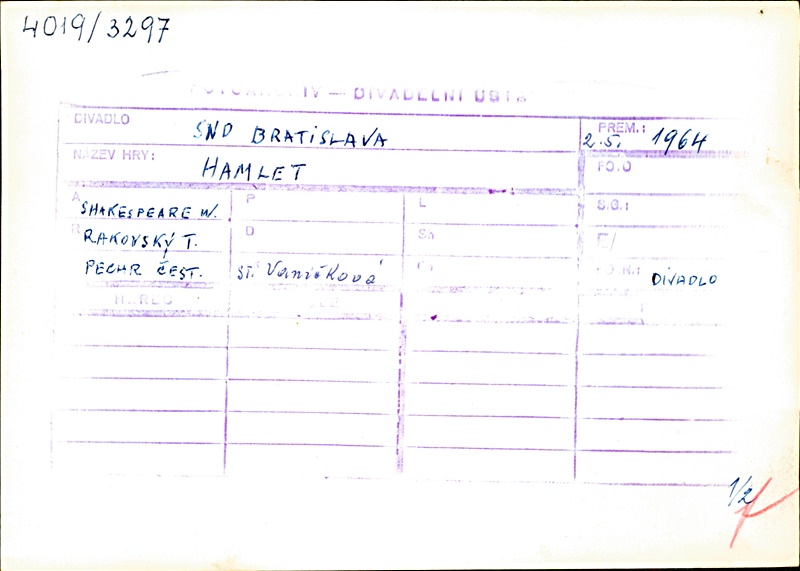 4019/3297
FOTOARCHIV — DIVADELNÍ ÚSTAV
DIVADLO SND BRATISLAVA PREM.: 2.5. 1964
NÁZEV HRY: HAMLET FOTO
A SHAKESPEARE W. P L SIG.:
R RAKOVSKÝ T. D Sn
PECHR ČEST. Vaníčková DIVADLO
HEREC
1/2